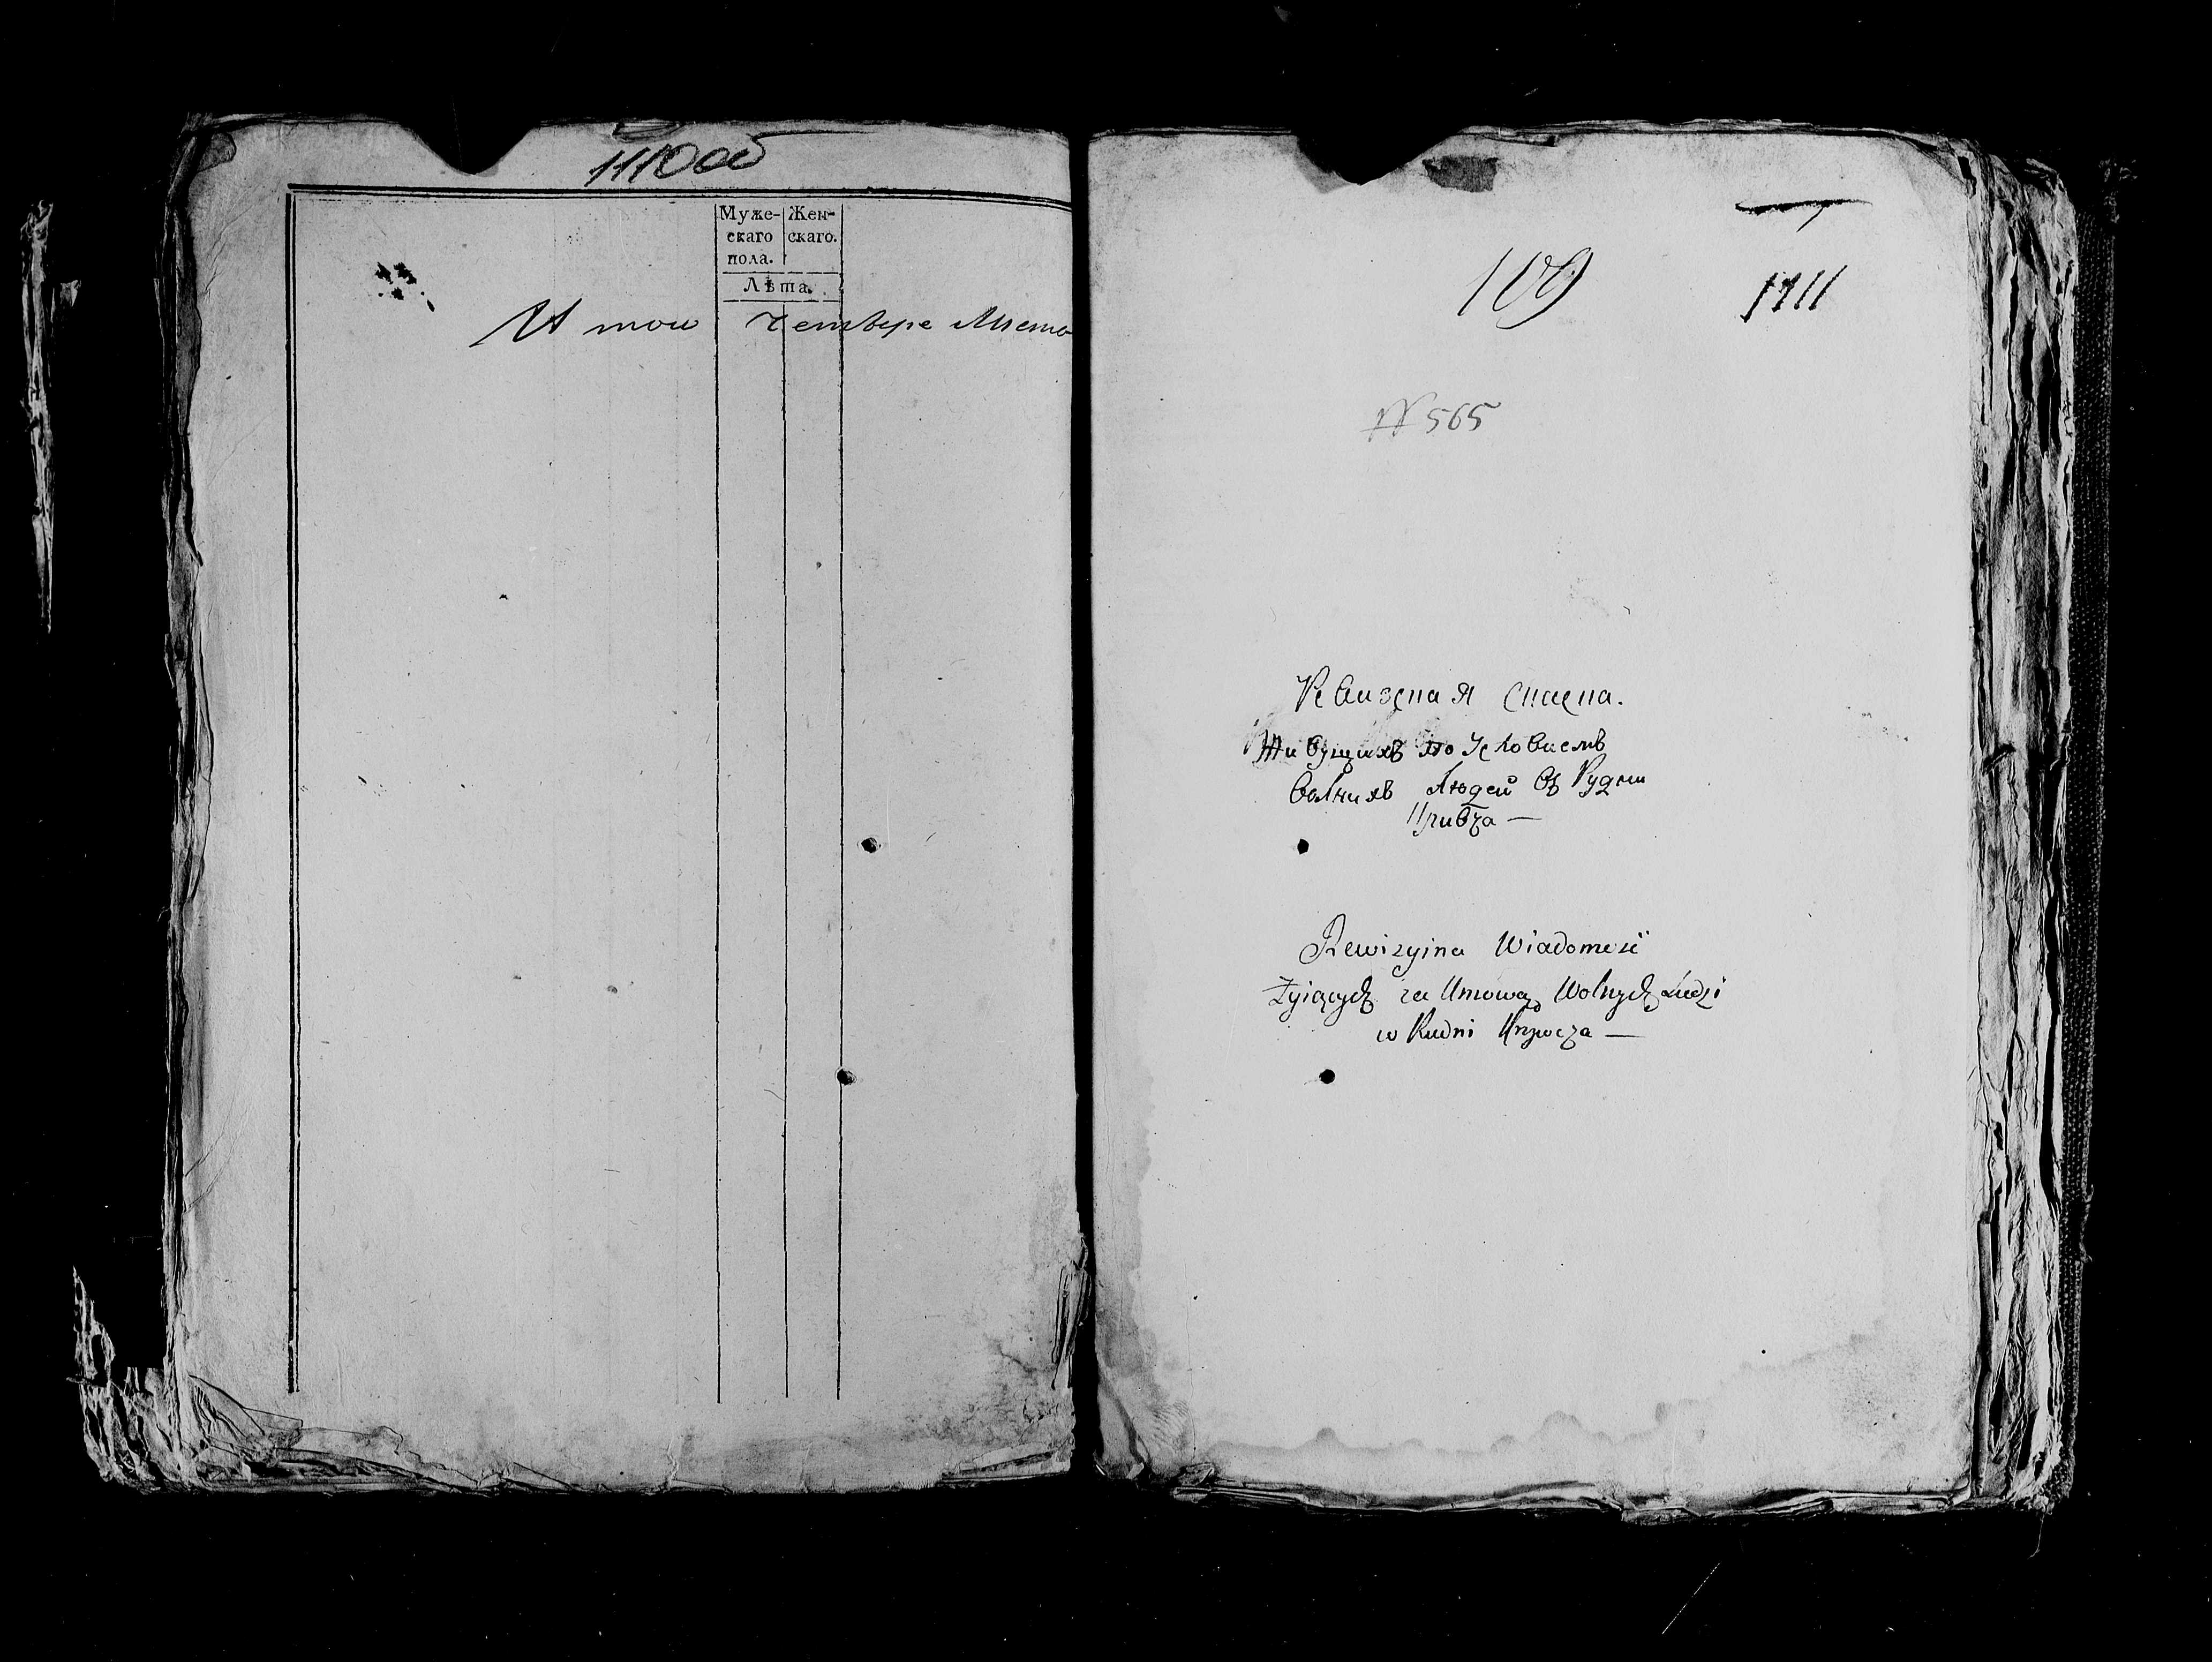 1110 об
Муже-
скаго
пола.
Жен-
скаго.
Лѣта.
И тои Четверг Место
109
1111
N 565
Ревизская Сказка.
Живущихъ по Условиемъ
Волнихъ Людей Въ Рудни
Кривча —
Rewizyina Wiadomość
Żyiących za Umową Wolnych Ludzi
w Rudni Krzywcza —